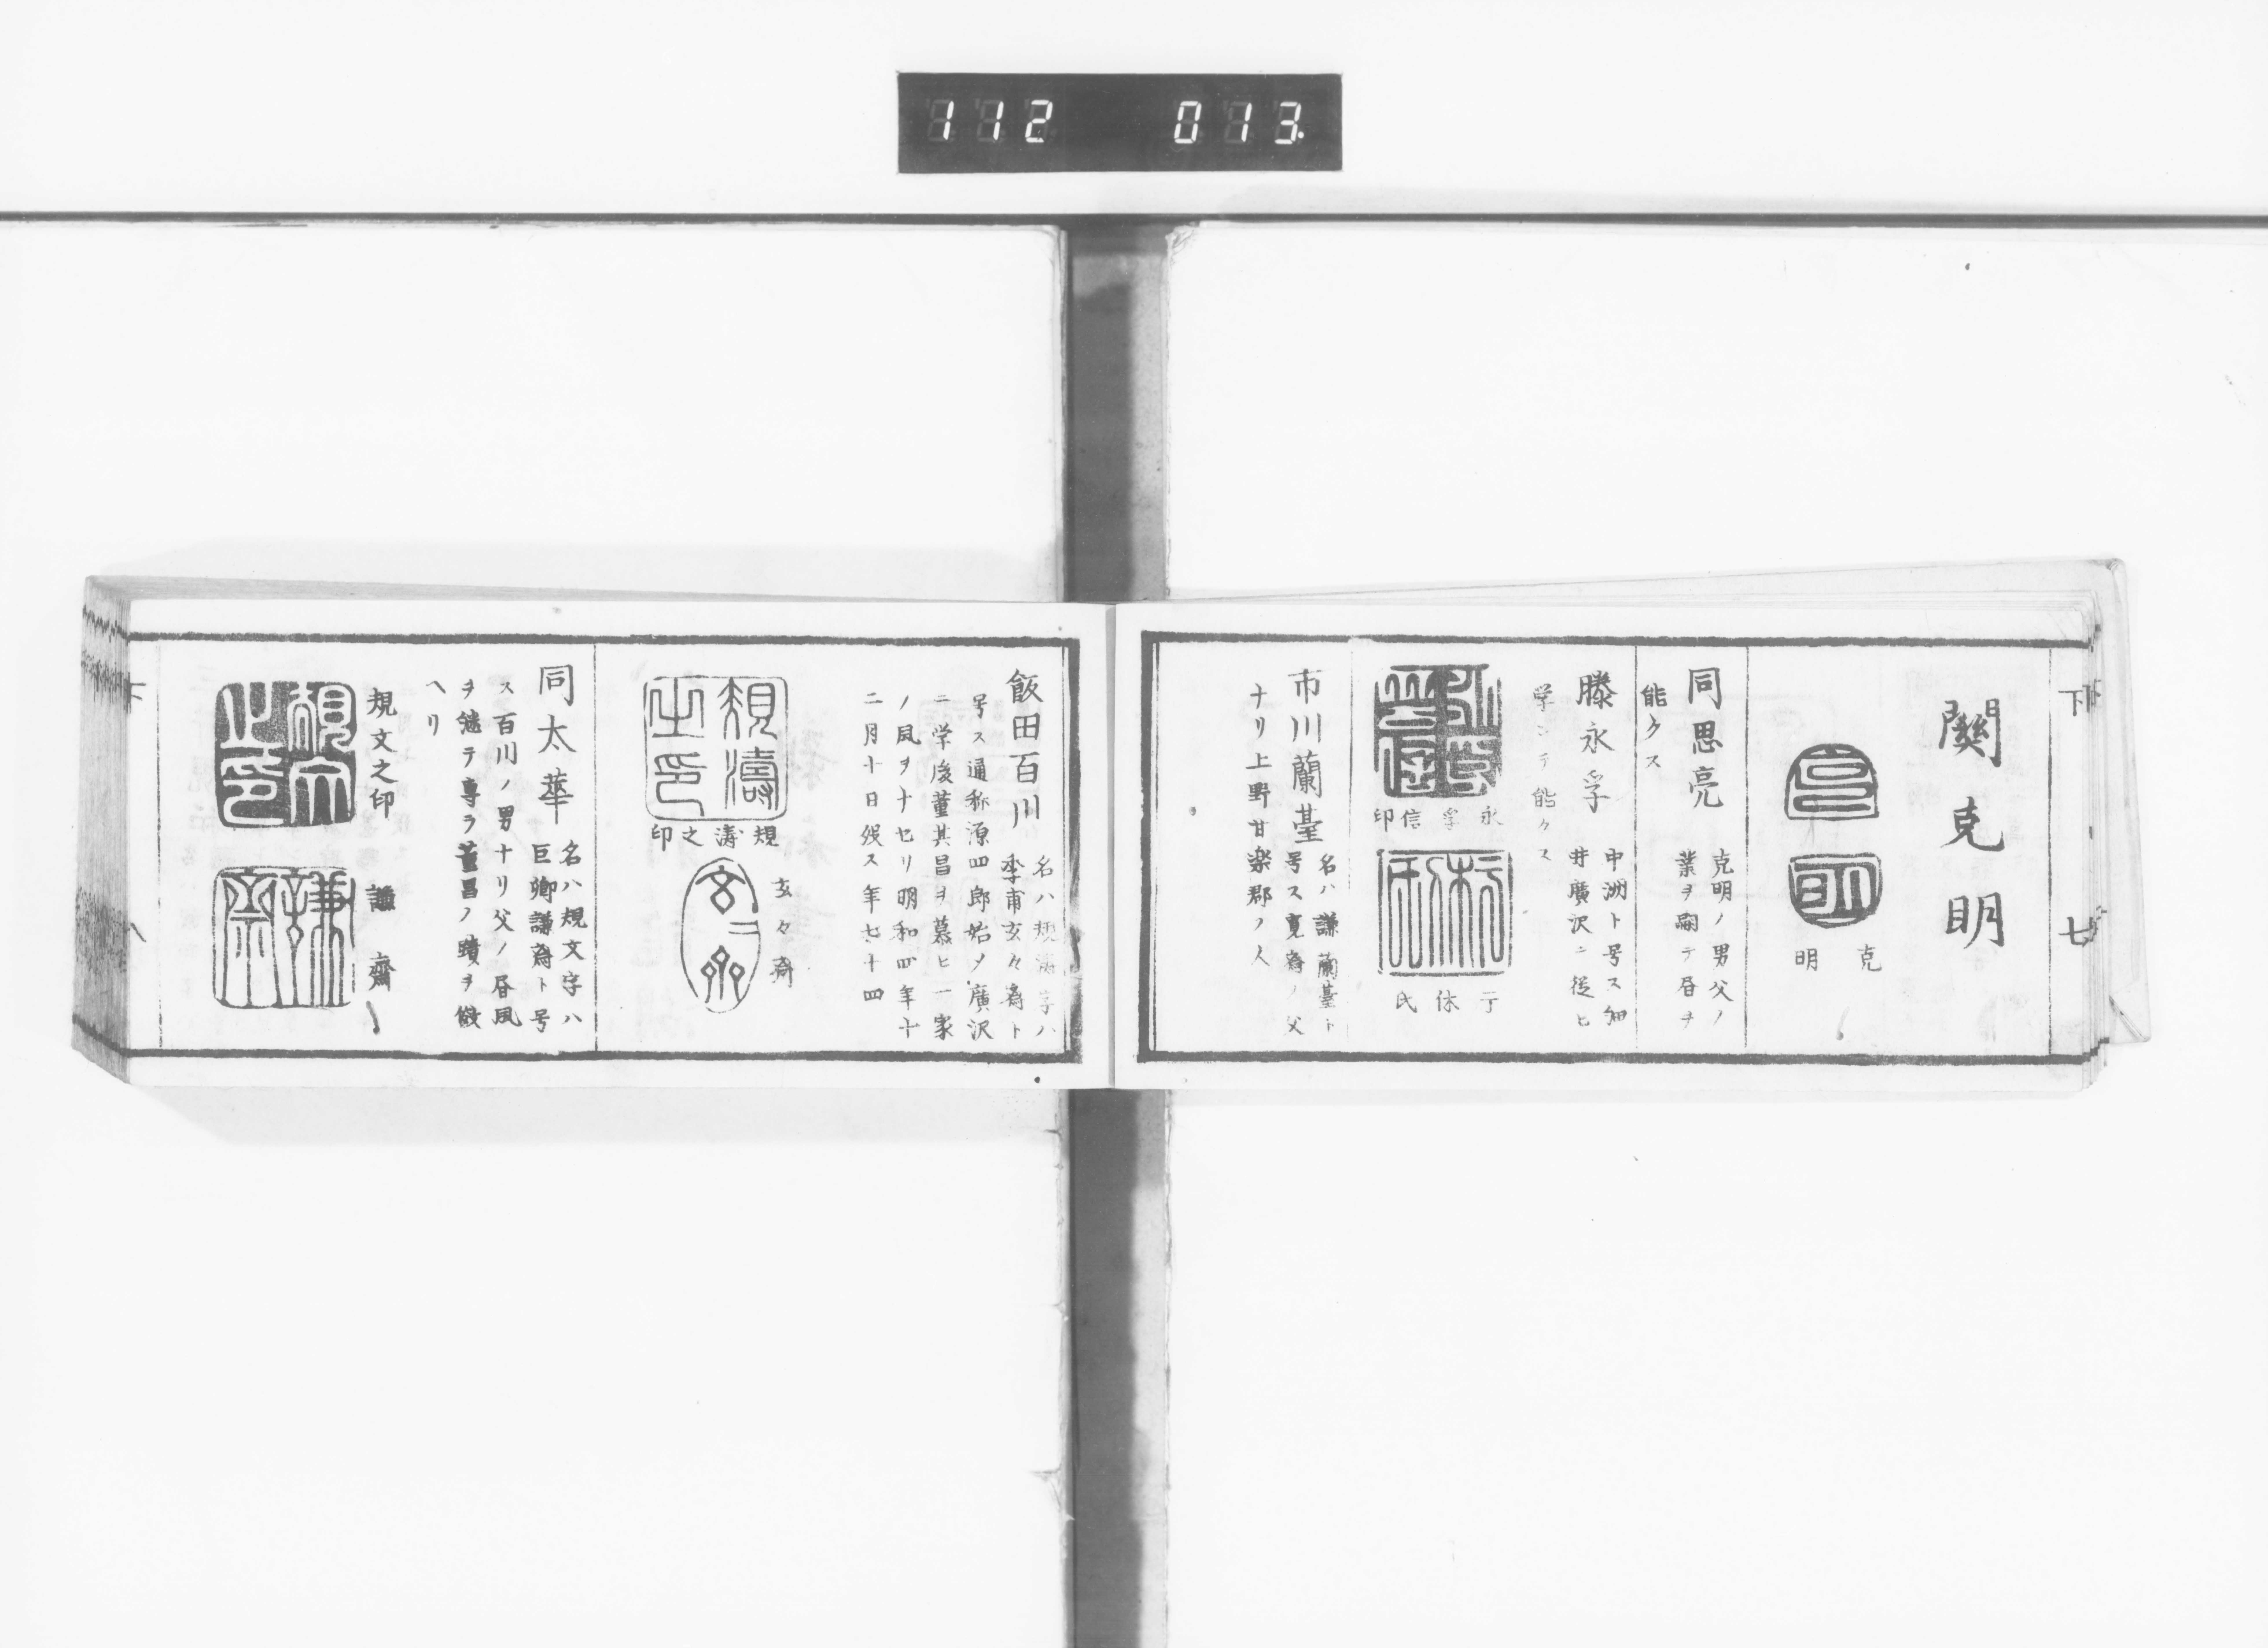 112 013
下 七
關克明
克明
同思亮
克明ノ男父ノ
業ヲ嗣テ昏ヲ
能クス
滕永孚
中洲ト号ス細
井廣沢ニ従ヒ
学ンテ能クス
永孚信印
休氏
市川蘭臺
名ハ謙蘭臺ト
号ス寛斎ノ父
ナリ上野甘楽郡ノ人
飯田百川
名ハ規濤字ハ
季甫玄々斎ト
号ス通称源四郎始メ廣沢
ニ学後董其昌ヲ慕ヒ一家
ノ風ヲナセリ明和四年十
二月十日歿ス年七十四
規濤之印
玄々斎
同太華
名ハ規文字ハ
巨卿謙斎ト号
ス百川ノ男ナリ父ノ昏風
ヲ継テ専ラ董昌ノ蹟ヲ倣
ヘリ
規文之印
謙齋
下